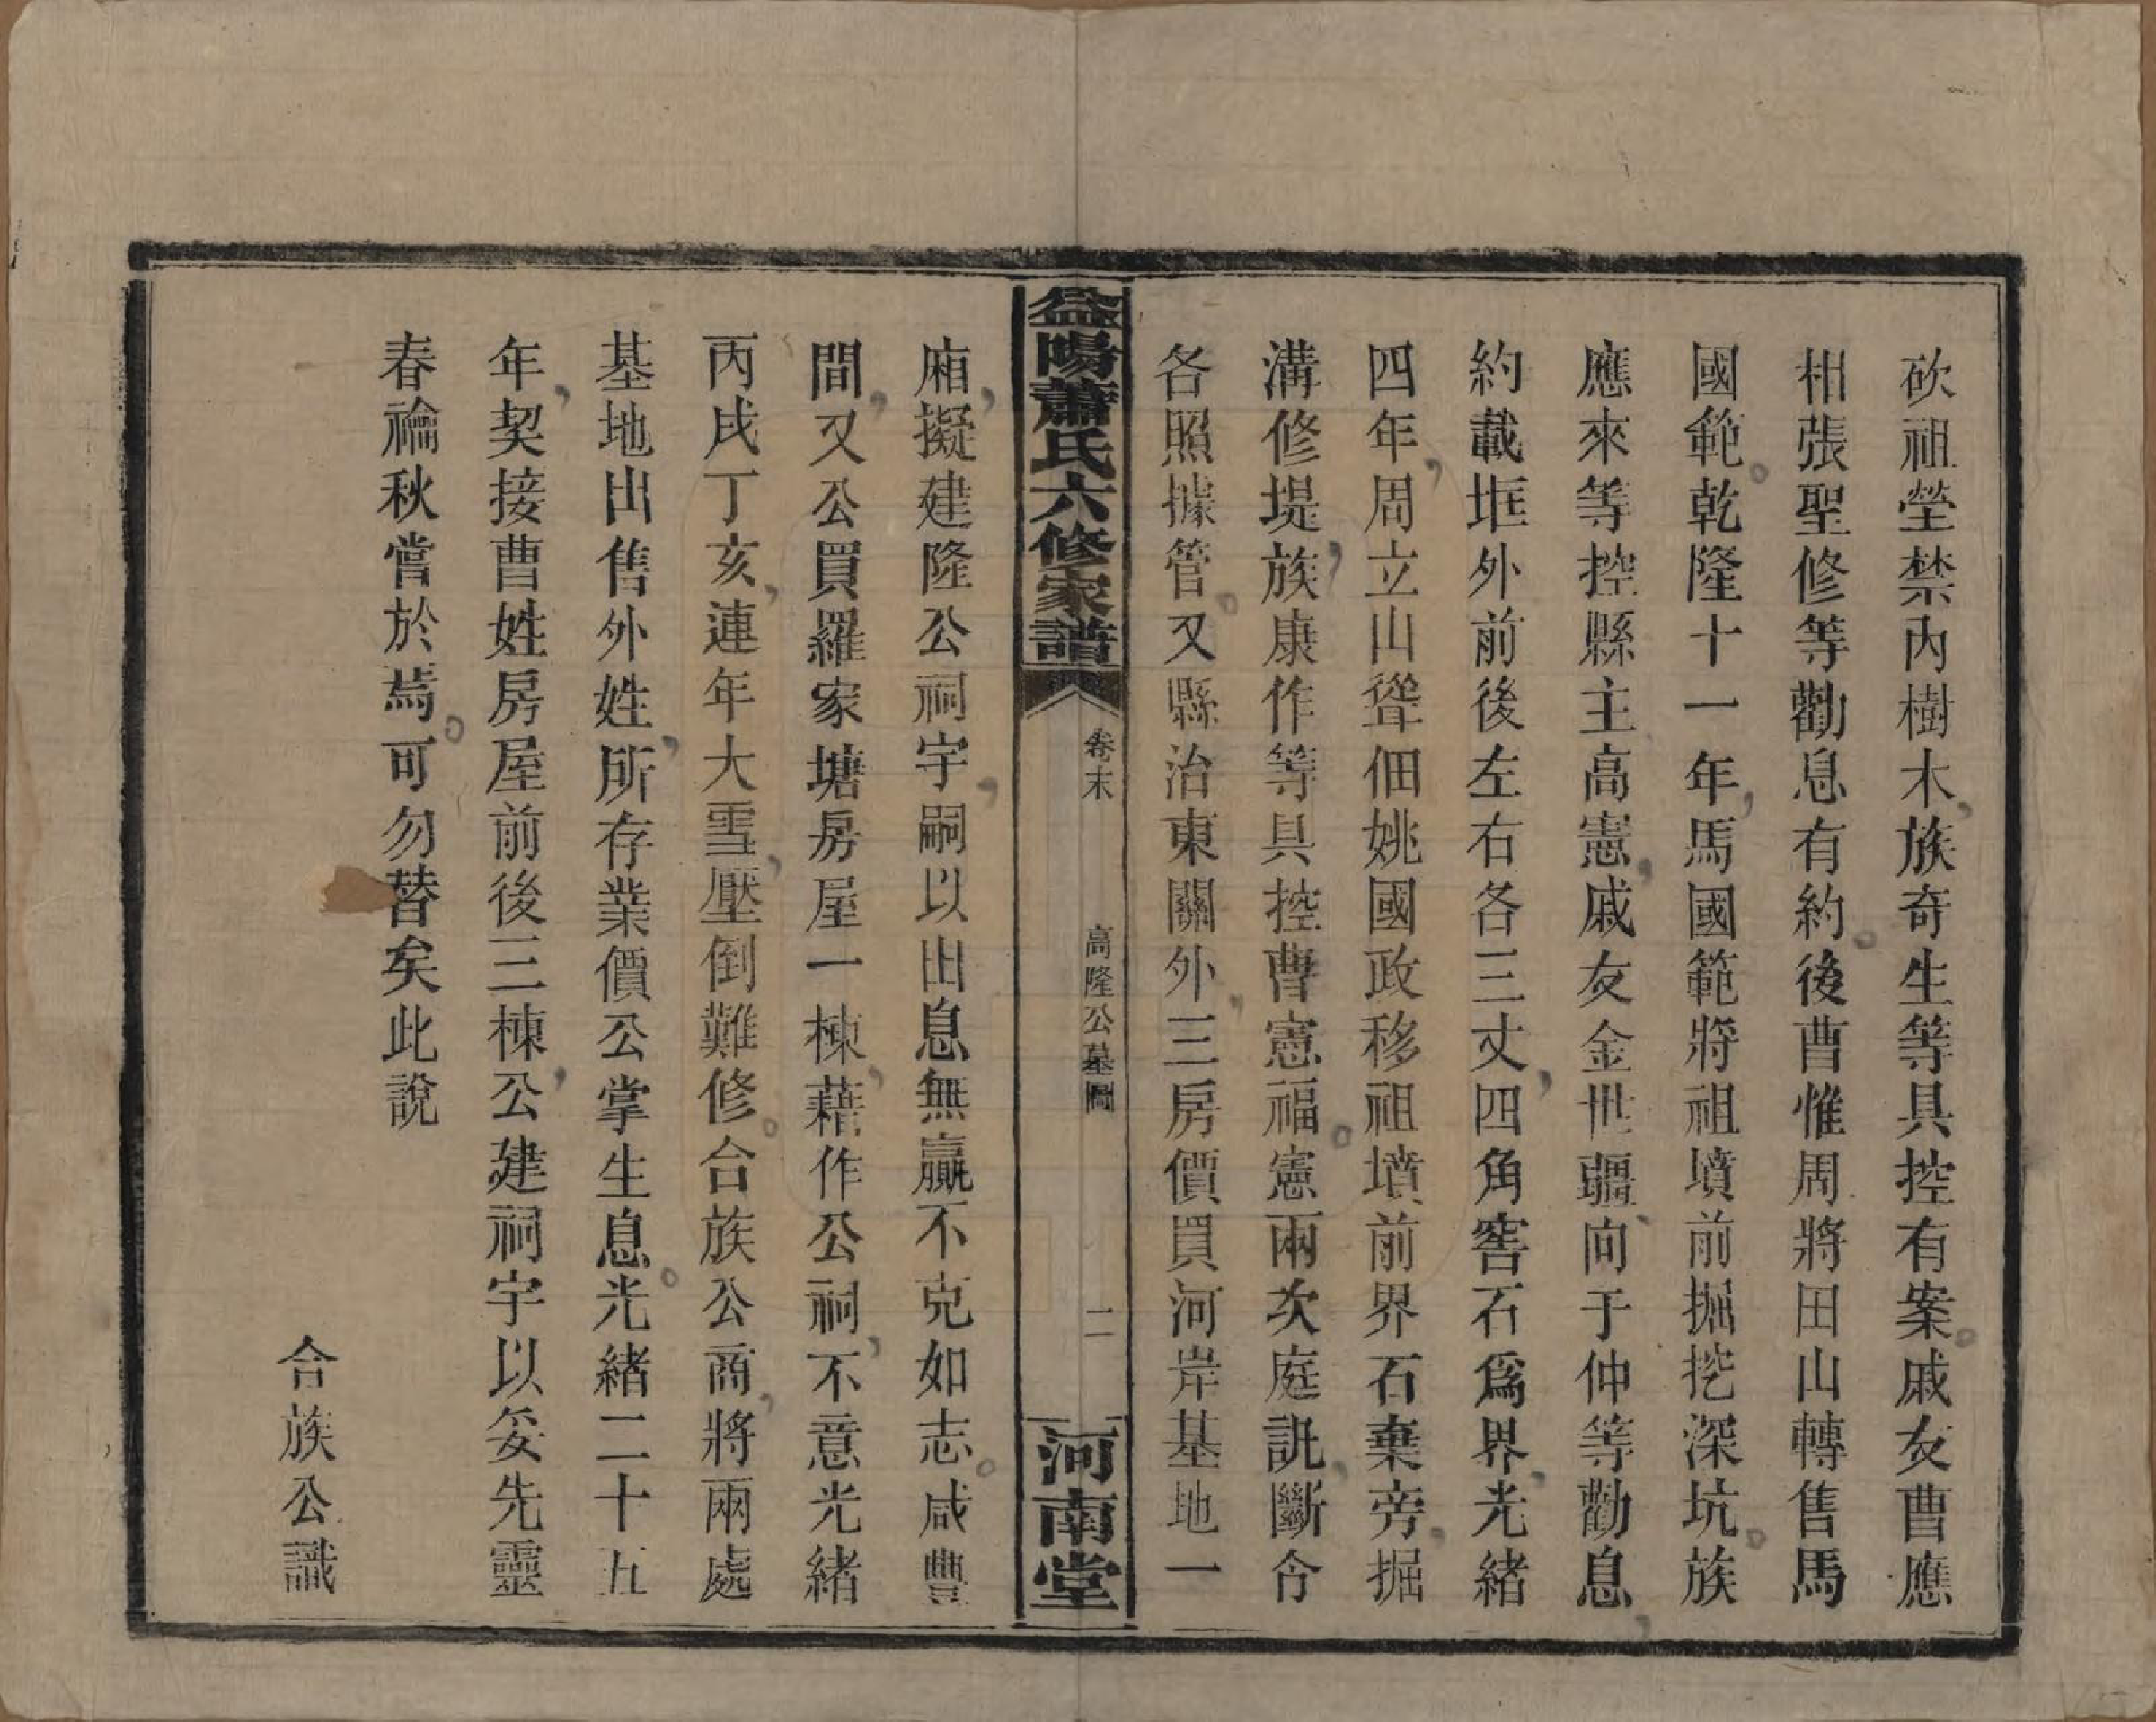 砍祖塋禁內樹木，族奇生等具控有案。戚友曹應
相張聖修等勸息有約。後曹惟周將田山轉售馬
國範。乾隆十一年，馬國範將祖墳前掘挖深坑。族
應來等控縣主高憲，戚友金世疆、向于仲等勸息，
約載坵外前後左右各三丈，四角窖石爲界，光緒
四年，周立山聳佃姚國政移祖墳前界石棄旁，掘
溝修堤，族康作等具控曹憲福。憲兩次庭訊，斷令
各照據管。又縣治東關外，三房價買河岸基地一
益陽蕭氏六修家譜
卷末
高隆公墓圖
二
河南堂
廂，擬建隆公祠宇，嗣以出息無贏不克如志。咸豐
間，又公買羅家塘房屋一棟，藉作公祠，不意光緒
丙戌丁亥，連年大雪，壓倒難修。合族公商，將兩處
基地出售外姓，所存業價公掌生息。光緒二十五
年，契接曹姓房屋前後三棟，公建祠宇以妥先靈
春禴秋嘗於焉。可勿替矣此說
合族公識